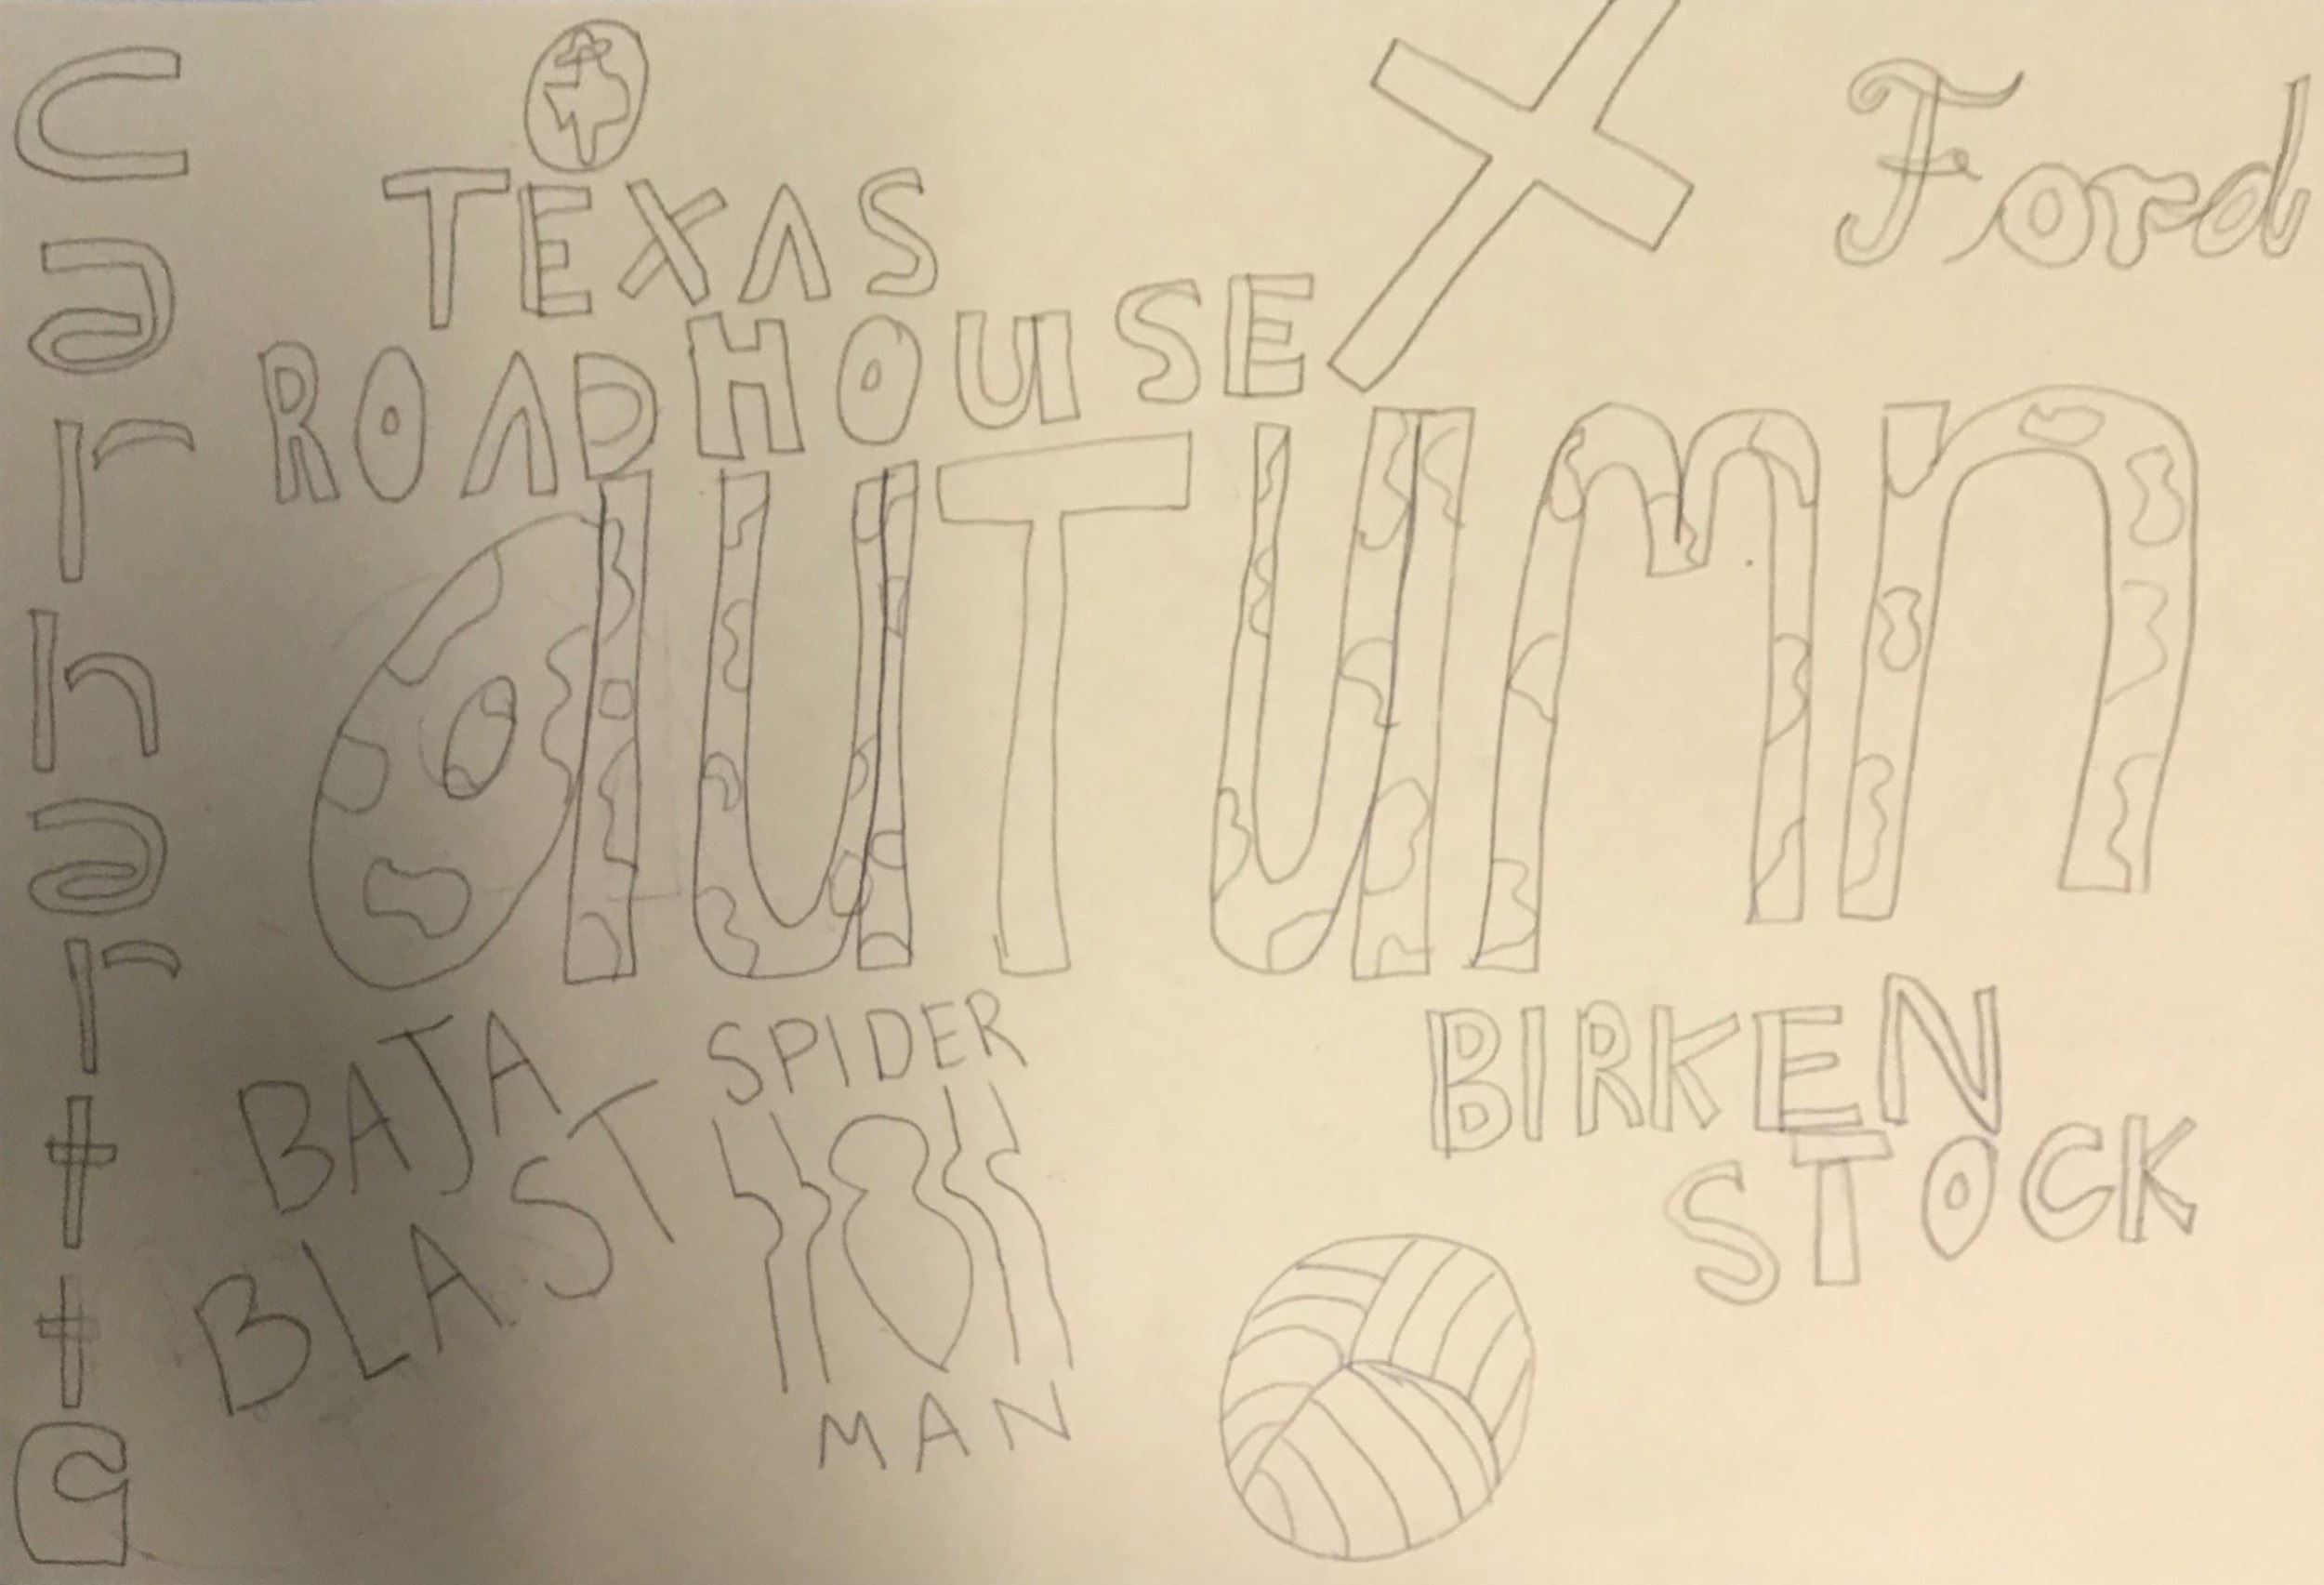 carhartt
TEXAS
ROADHOUSE
Ford
auTumn
BAJA
BLAST
SPIDER
MAN
BIRKEN
STOCK